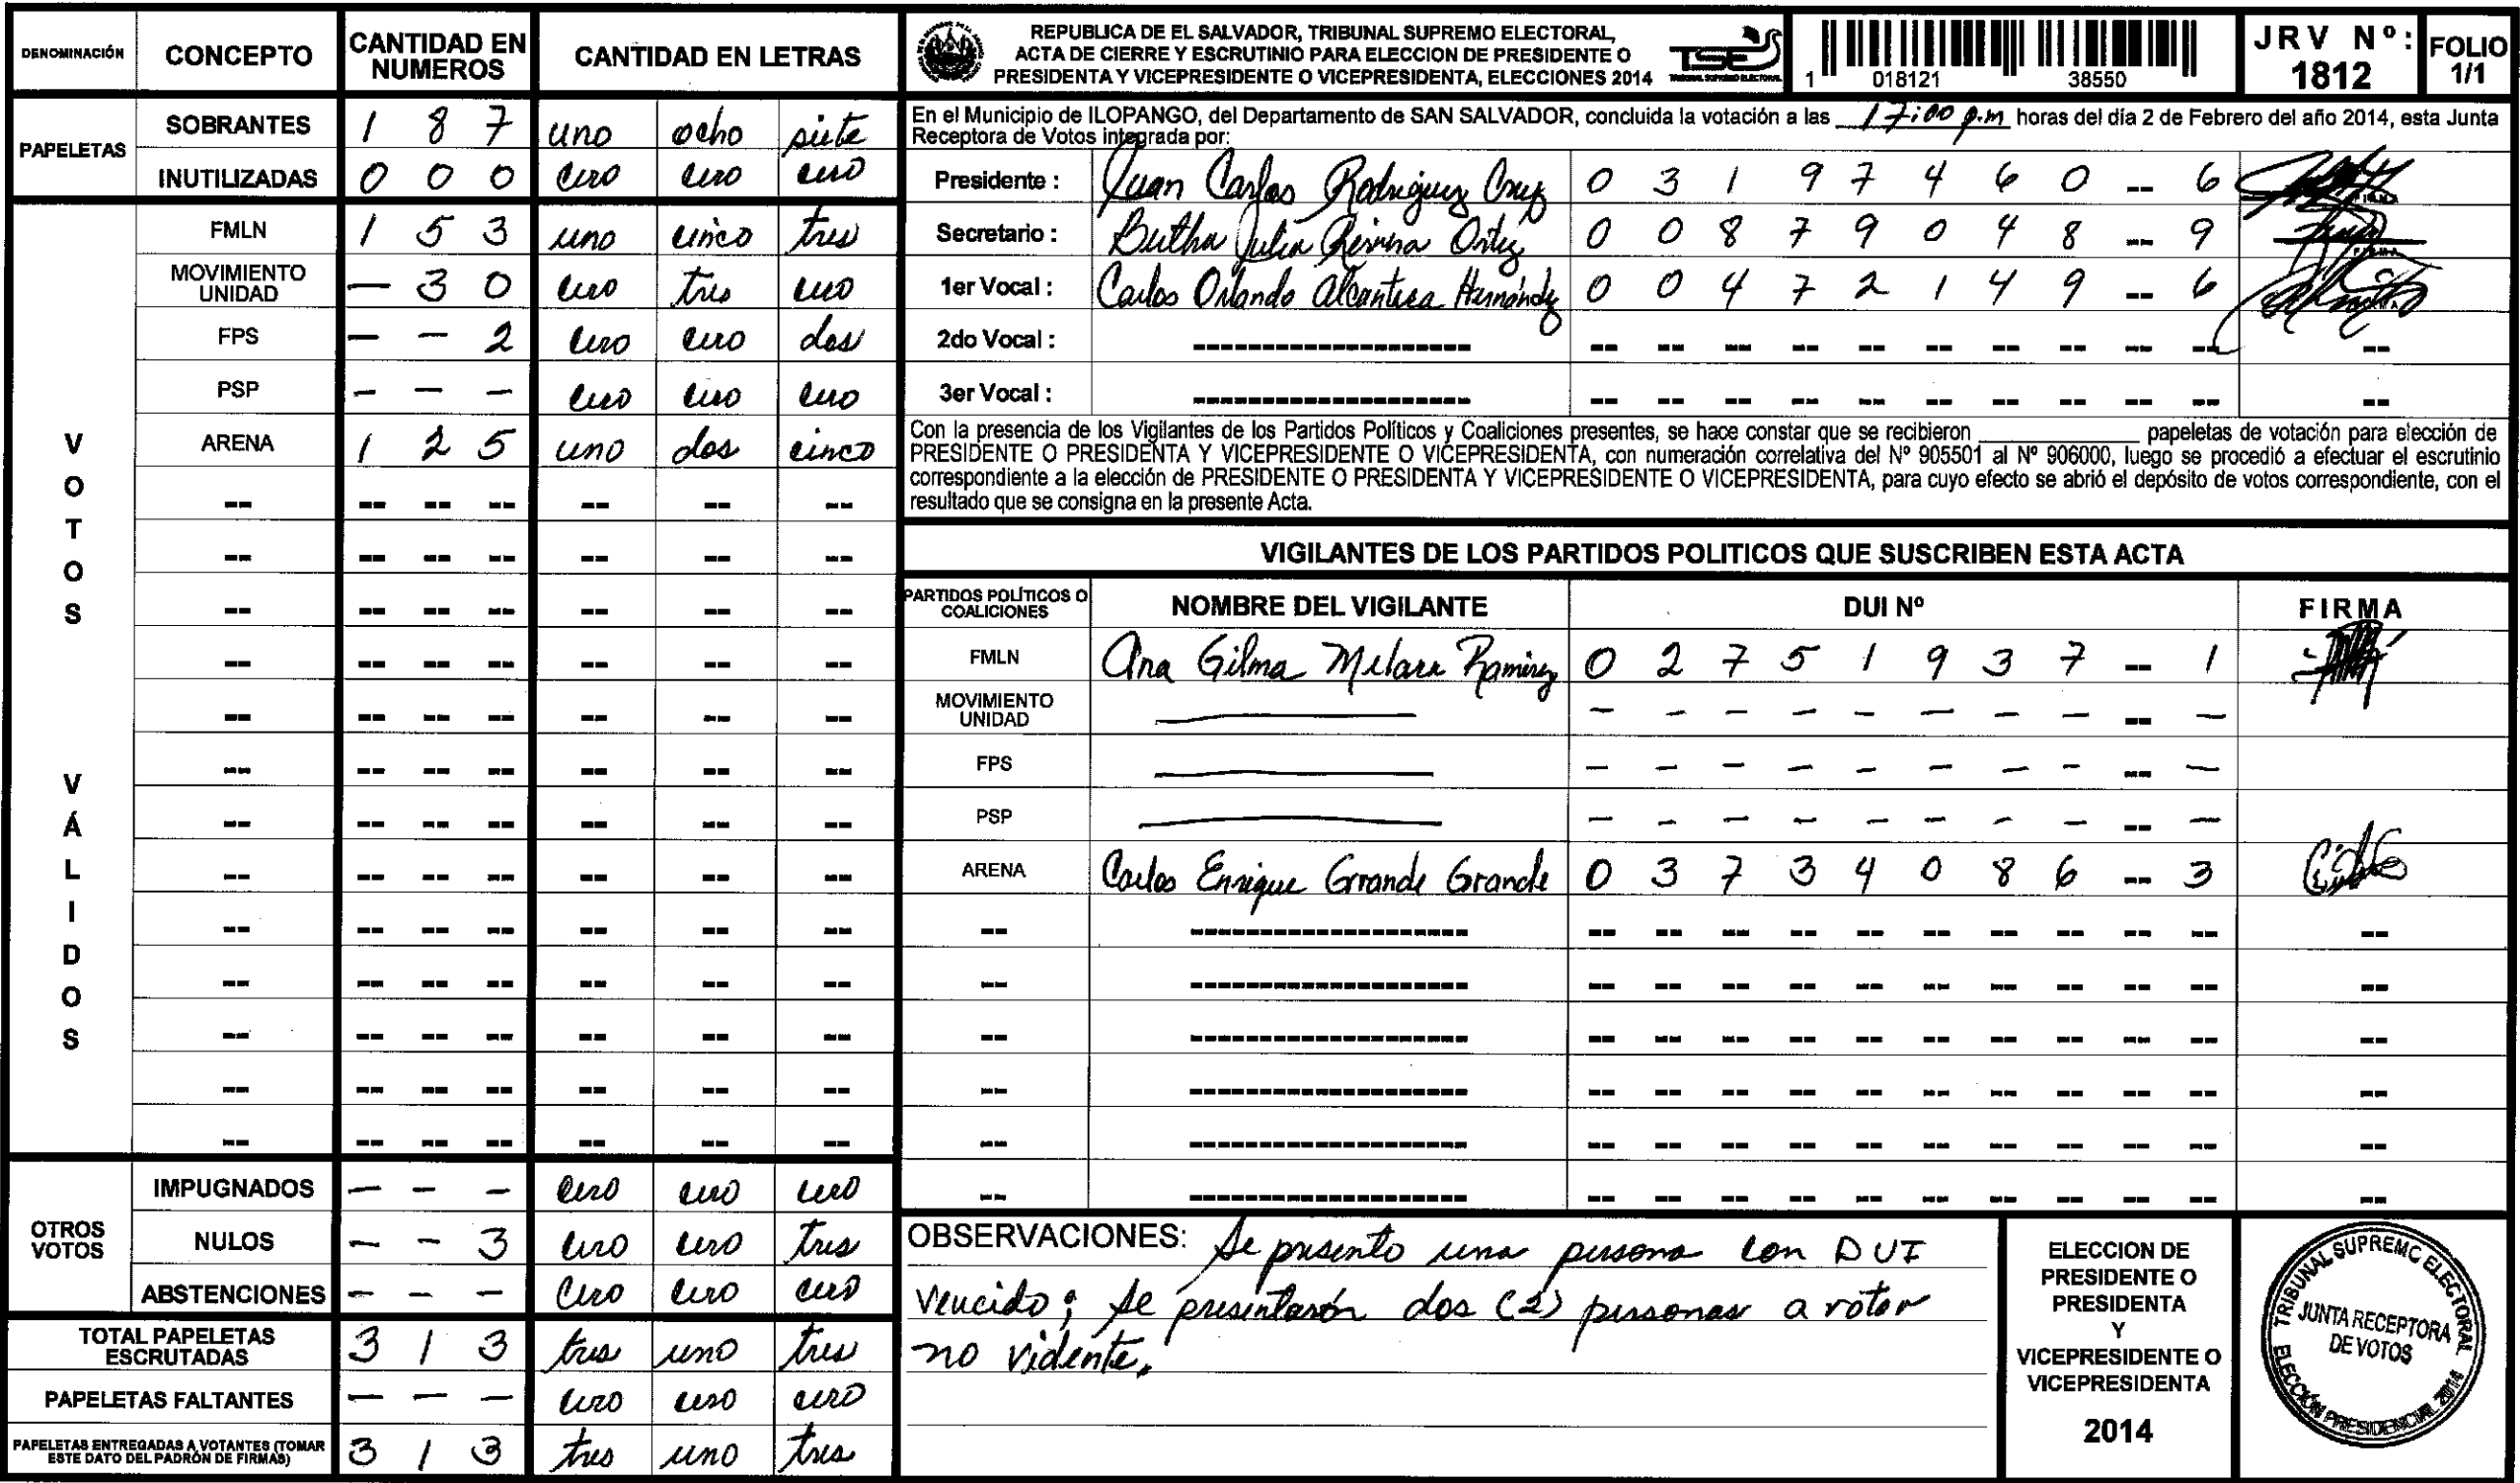 DENOMINACIÓN CONCEPTO CANTIDAD EN NUMEROS CANTIDAD EN LETRAS
PAPELETAS
SOBRANTES 1 8 7 uno ocho siete
INUTILIZADAS 0 0 0 cero cero cero
VOTOS VÁLIDOS
FMLN 1 5 3 uno cinco tres
MOVIMIENTO UNIDAD — 3 0 cero tres cero
FPS — — 2 cero cero dos
PSP — — — cero cero cero
ARENA 1 2 5 uno dos cinco
OTROS VOTOS
IMPUGNADOS — — — cero cero cero
NULOS — — 3 cero cero tres
ABSTENCIONES — — — cero cero cero
TOTAL PAPELETAS ESCRUTADAS 3 1 3 tres uno tres
PAPELETAS FALTANTES — — — cero cero cero
PAPELETAS ENTREGADAS A VOTANTES (TOMAR ESTE DATO DEL PADRÓN DE FIRMAS) 3 1 3 tres uno tres
REPUBLICA DE EL SALVADOR, TRIBUNAL SUPREMO ELECTORAL,
ACTA DE CIERRE Y ESCRUTINIO PARA ELECCION DE PRESIDENTE O
PRESIDENTA Y VICEPRESIDENTE O VICEPRESIDENTA, ELECCIONES 2014
TSE
TRIBUNAL SUPREMO ELECTORAL
1 018121 38550
JRV Nº: 1812
FOLIO 1/1
En el Municipio de ILOPANGO, del Departamento de SAN SALVADOR, concluida la votación a las 17:00 p.m horas del día 2 de Febrero del año 2014, esta Junta
Receptora de Votos integrada por:
Presidente : Juan Carlos Rodriguez Cruz 0 3 1 9 7 4 6 0 -- 6
Secretario : Bertha Julia Rivera Ortiz 0 0 8 7 9 0 4 8 -- 9
1er Vocal : Carlos Orlando Alcantara Hernández 0 0 4 7 2 1 4 9 -- 6
2do Vocal :
3er Vocal :
Con la presencia de los Vigilantes de los Partidos Políticos y Coaliciones presentes, se hace constar que se recibieron ____________ papeletas de votación para elección de
PRESIDENTE O PRESIDENTA Y VICEPRESIDENTE O VICEPRESIDENTA, con numeración correlativa del Nº 905501 al Nº 906000, luego se procedió a efectuar el escrutinio
correspondiente a la elección de PRESIDENTE O PRESIDENTA Y VICEPRESIDENTE O VICEPRESIDENTA, para cuyo efecto se abrió el depósito de votos correspondiente, con el
resultado que se consigna en la presente Acta.
VIGILANTES DE LOS PARTIDOS POLITICOS QUE SUSCRIBEN ESTA ACTA
PARTIDOS POLÍTICOS O COALICIONES NOMBRE DEL VIGILANTE DUI Nº FIRMA
FMLN Ana Gilma Melara Ramirez 0 2 7 5 1 9 3 7 -- 1
MOVIMIENTO UNIDAD
FPS
PSP
ARENA Carlos Enrique Grande Grande 0 3 7 3 4 0 8 6 -- 3
OBSERVACIONES: Se presento una persona con DUI
vencido; se presentarón dos (2) personas a votar
no vidente.
ELECCION DE
PRESIDENTE O
PRESIDENTA
Y
VICEPRESIDENTE O
VICEPRESIDENTA
2014
TRIBUNAL SUPREMO ELECTORAL
JUNTA RECEPTORA
DE VOTOS
ELECCIÓN PRESIDENCIAL 2014